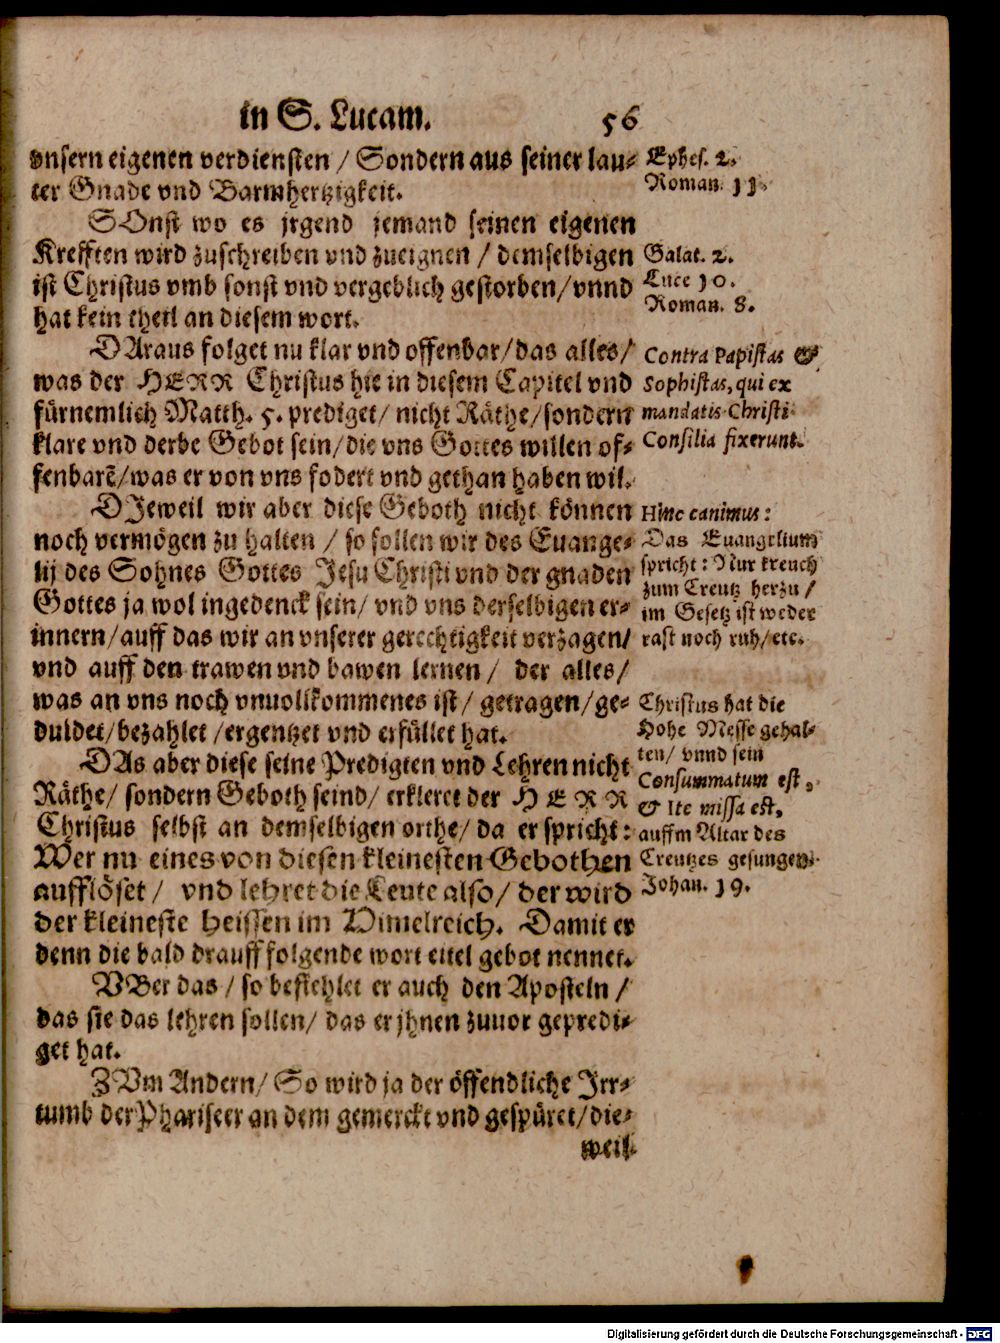 in S. Lucam. 56
vnsern eigenen verdiensten / Sondern aus seiner lau⸗
ter Gnade vnd Barmhertzigkeit.
SOnst wo es jrgend jemand seinen eigenen
Krefften wird zuschreiben vnd zueignen / demselbigen
ist Christus vmb sonst vnd vergeblich gestorben/ vnnd
hat kein theil an diesem wort.
DAraus folget nu klar vnd offenbar/ das alles/
was der HERR Christus hie in diesem Capitel vnd
fürnemlich Matth. 5. prediget/ nicht Räthe/ sondern
klare vnd derbe Gebot sein/ die vns Gottes willen of⸗
fenbarẽ/ was er von vns fodert vnd gethan haben wil.
DJeweil wir aber diese Geboth nicht können
noch vermögen zu halten / so sollen wir des Euange⸗
lij des Sohnes Gottes Jesu Christi vnd der gnaden
Gottes ja wol ingedenck sein/ vnd vns derselbigen er⸗
innern/ auff das wir an vnserer gerechtigkeit verzagen/
vnd auff den trawen vnd bawen lernen / der alles/
was an vns noch vnuollkommenes ist/ getragen/ ge⸗
duldet/ bezahlet / ergentzet vnd erfüllet hat.
DAs aber diese seine Predigten vnd Lehren nicht
Räthe/ sondern Geboth seind/ erkleret der HERR
Christus selbst an demselbigen orthe/ da er spricht:
Wer nu eines von diesen kleinesten Gebothen
aufflöset / vnd lehret die Leute also/ der wird
der kleineste heissen im Himelreich. Damit er
denn die bald drauff folgende wort eitel gebot nennet.
VBer das / so befiehlet er auch den Aposteln /
das sie das lehren sollen/ das er jhnen zuuor gepredi⸗
get hat.
ZVm Andern/ So wird ja der öffendliche Irr⸗
tumb der Phariseer an dem gemerckt vnd gespüret/ die⸗
weil
Ephes. 2.
Roman. 11.
Galat. 2.
Luce 10.
Roman. 8.
Contra Papistas &
Sophistas, qui ex
mandatis Christi
Consilia fixerunt.
Hinc canimus:
Das Euangelium
spricht: Nur kreuch
zum Creutz herzu /
im Gesetz ist weder
rast noch ruh/ etc.
Christus hat die
Hohe Messe gehal⸗
ten/ vnnd sein
Consummatum est,
& Ite missa est,
auffm Altar des
Creutzes gesungen.
Johan. 19.
Digitalisierung gefördert durch die Deutsche Forschungsgemeinschaft - DFG